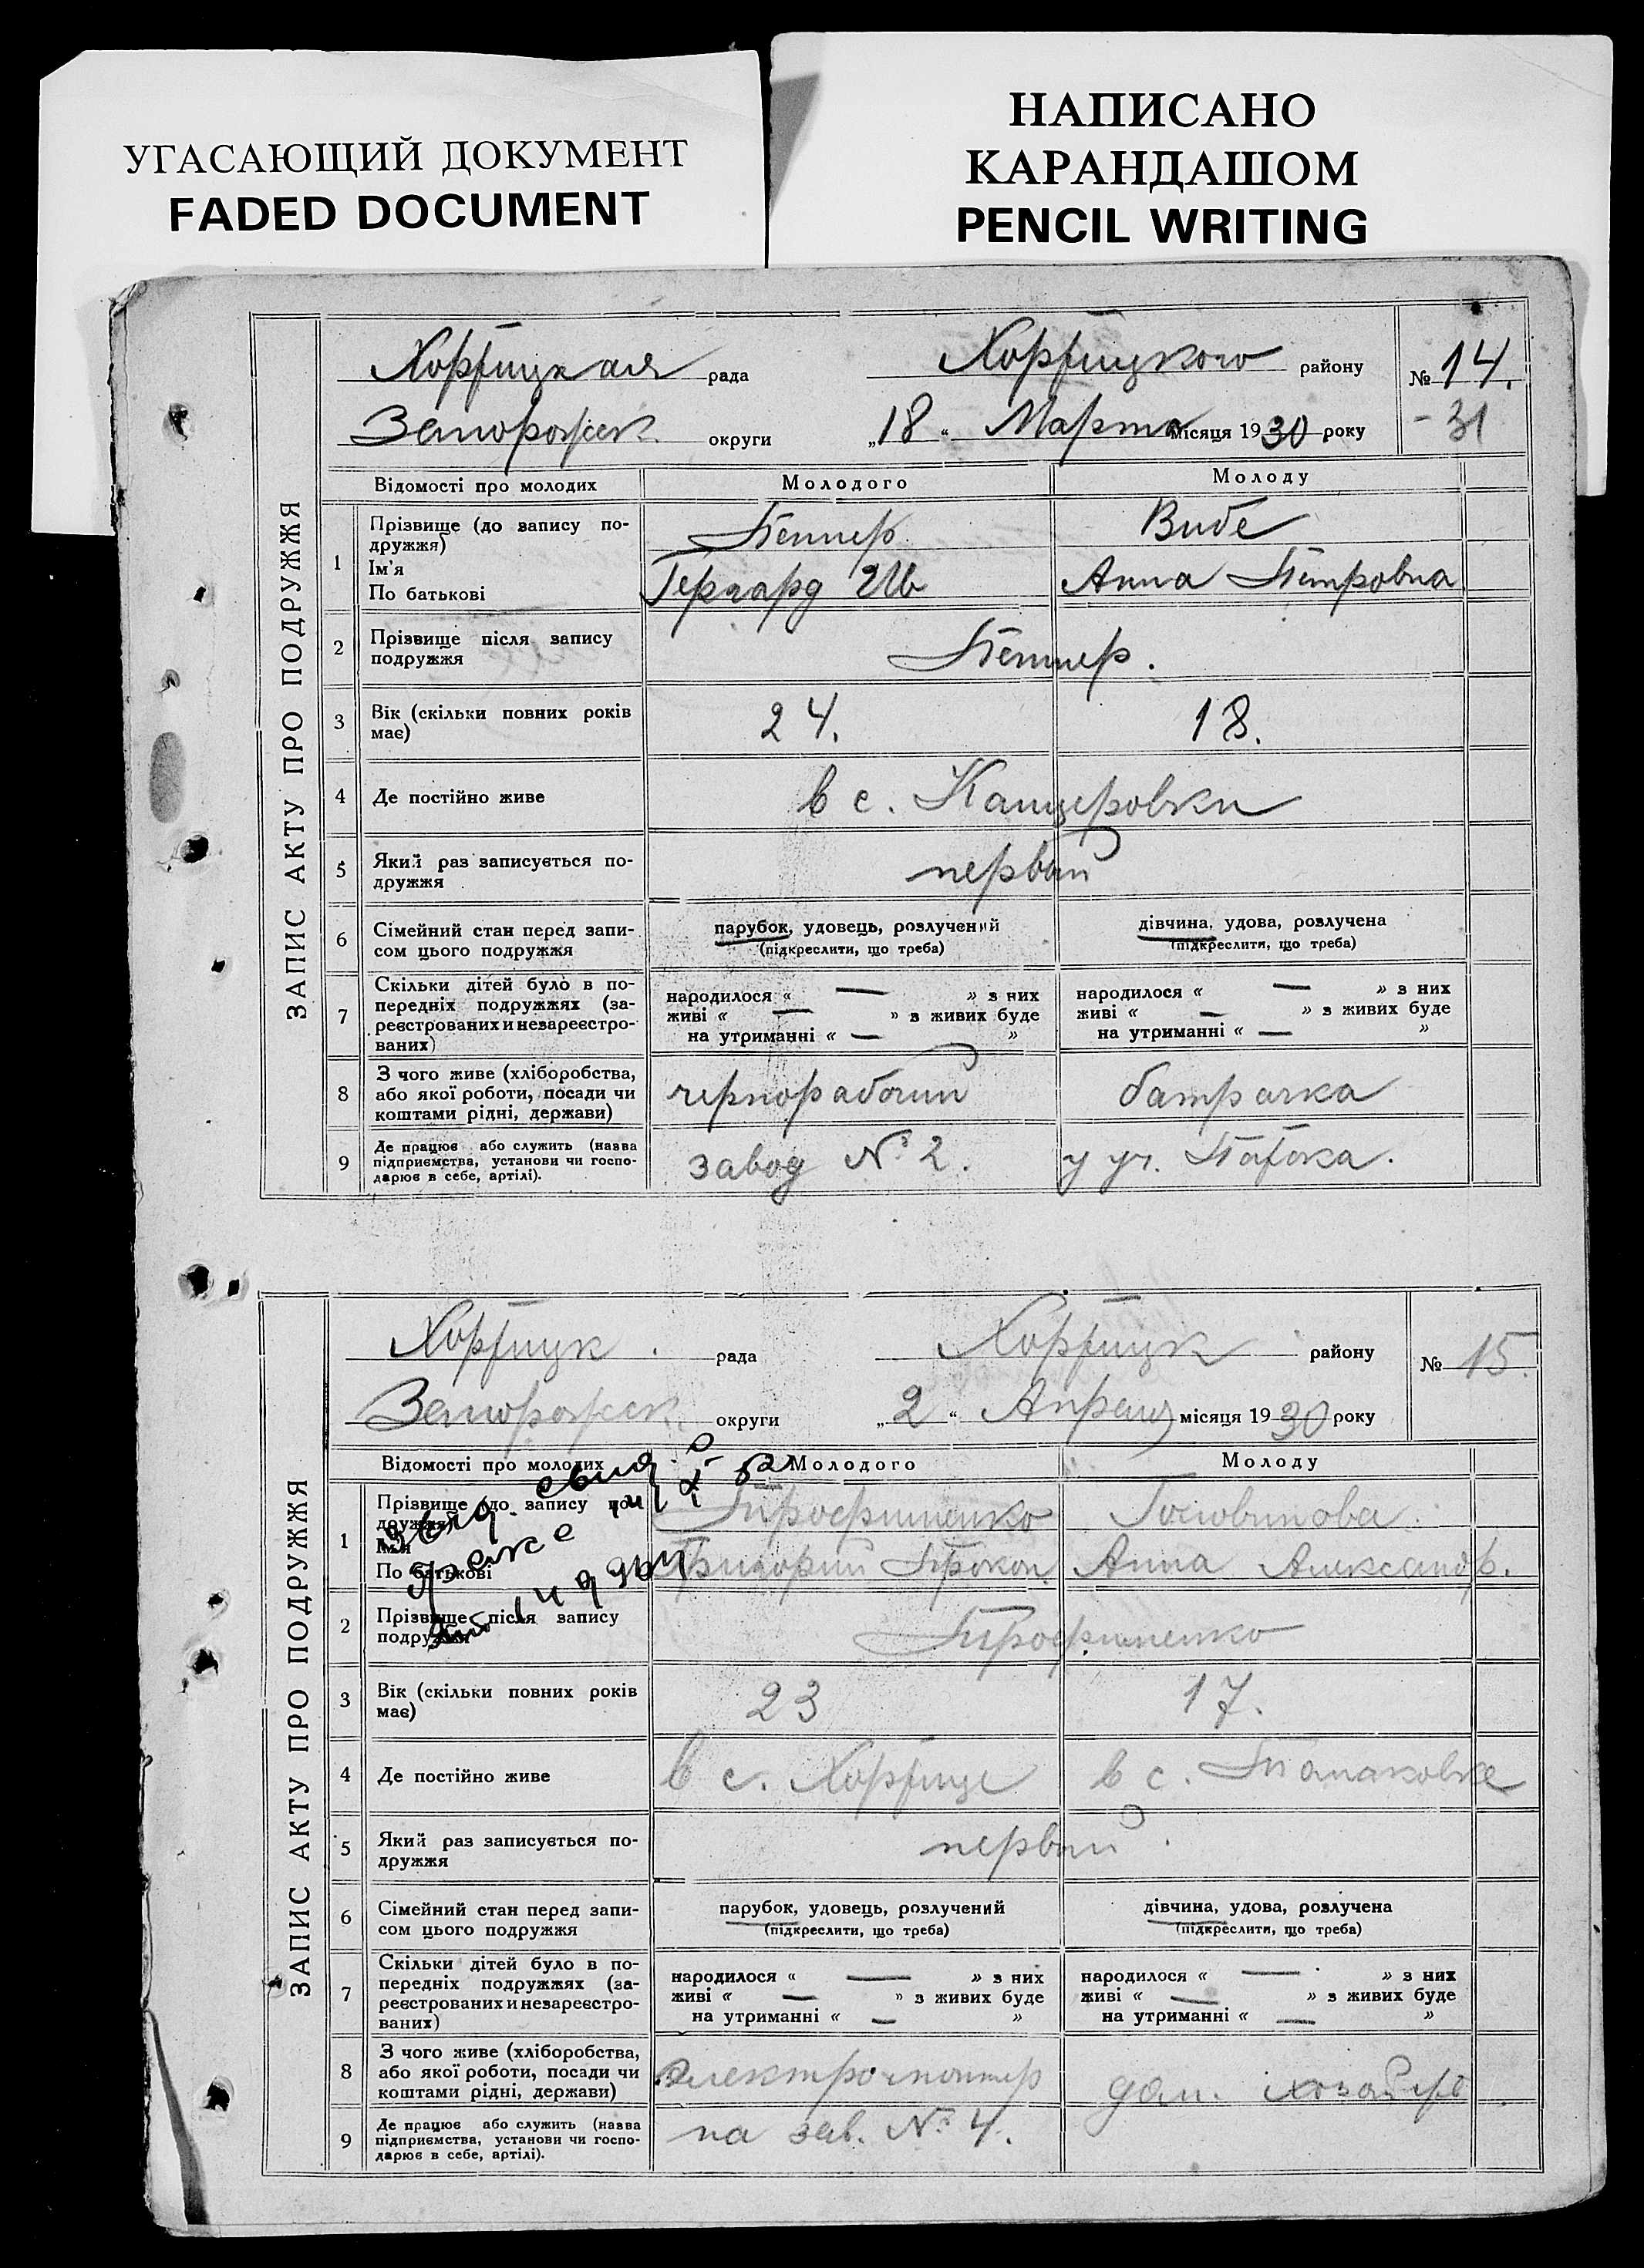 УГАСАЮЩИЙ ДОКУМЕНТ
FADED DOCUMENT
НАПИСАНО
КАРАНДАШОМ
PENCIL WRITING
ЗАПИС АКТУ ПРО ПОДРУЖЖЯ
Хортицкая рада Хортицкого району № 14.
Запорожск округи „18“ Марта місяця 1930 року - 31
Відомості про молодих Молодого Молоду
1 Прізвище (до запису по-
дружжя) Пеннер Вибе
Ім'я
По батькові Гергард Ив Анна Петровна
2 Прізвище після запису
подружжя Пеннер.
3 Вік (скільки повних років
має) 24. 18.
4 Де постійно живе в с. Канцеровки
5 Який раз записується по-
дружжя первый
6 Сімейний стан перед запи-
сом цього подружжя
парубок, удовець, розлучений дівчина, удова, розлучена
(підкреслити, що треба) (підкреслити, що треба)
7 Скільки дітей було в по-
передніх подружжях (за-
реєстрованих и незареєстро-
ваних)
народилося « — » з них народилося « — » з них
живі « — » з живих буде живі « — » з живих буде
на утриманні « — » на утриманні « — »
8 З чого живе (хліборобства,
або якої роботи, посади чи
коштами рідні, держави) чернорабочий батрачка
9 Де працює або служить (назва
підприємства, установи чи госпо-
дарює в себе, артілі). завод № 2. у гр.
ЗАПИС АКТУ ПРО ПОДРУЖЖЯ
Хортицк. рада Хортицк району № 15.
Запорожск. округи „2“ Апреля місяця 1930 року
Відомості про молодих Молодого Молоду
1 Прізвище (до запису по-
дружжя) Трофименко Головинова.
Ім'я
По батькові Григорий Прокоп. Анна Александр.
2 Прізвище після запису
подружжя Трофименко
3 Вік (скільки повних років
має) 23 17.
4 Де постійно живе в с. Хортице в с. Томаковке
5 Який раз записується по-
дружжя первый
6 Сімейний стан перед запи-
сом цього подружжя
парубок, удовець, розлучений дівчина, удова, розлучена
(підкреслити, що треба) (підкреслити, що треба)
7 Скільки дітей було в по-
передніх подружжях (за-
реєстрованих и незареєстро-
ваних)
народилося « — » з них народилося « — » з них
живі « — » з живих буде живі « — » з живих буде
на утриманні « — » на утриманні « — »
8 З чого живе (хліборобства,
або якої роботи, посади чи
коштами рідні, держави) электромонтер дом.
9 Де працює або служить (назва
підприємства, установи чи госпо-
дарює в себе, артілі). на зав. № 4.